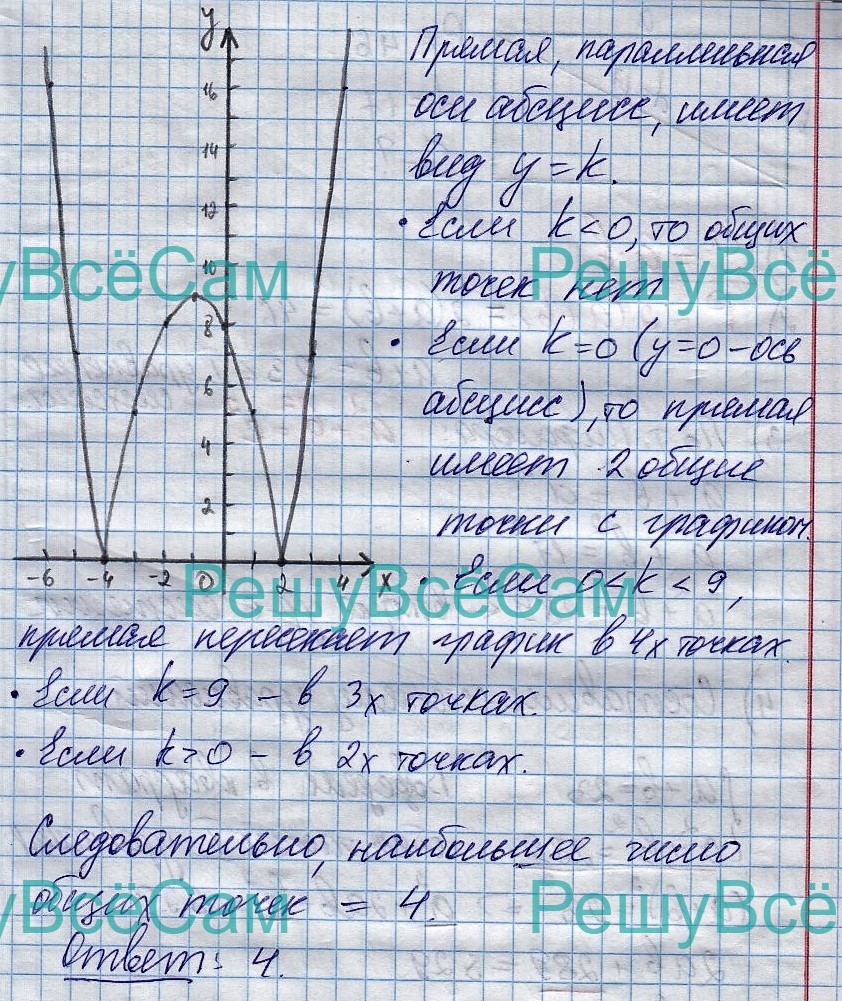 у
16
14
12
10
8
6
4
2
-6 -4 -2 0 2 4 х
Прямая, параллельная
оси абсцисс, имеет
вид y = k.
• Если k < 0, то общих
точек нет
• Если k = 0 (y = 0 - ось
абсцисс), то прямая
имеет 2 общие
точки с графиком.
• Если 0 < k < 9,
прямая пересекает график в 4х точках.
• Если k = 9 - в 3х точках.
• Если k > 0 - в 2х точках.
Следовательно, наибольшее число
общих точек = 4.
Ответ: 4.
уВсёСам
РешуВсё
РешуВсёСам
уВсёСам
РешуВсё